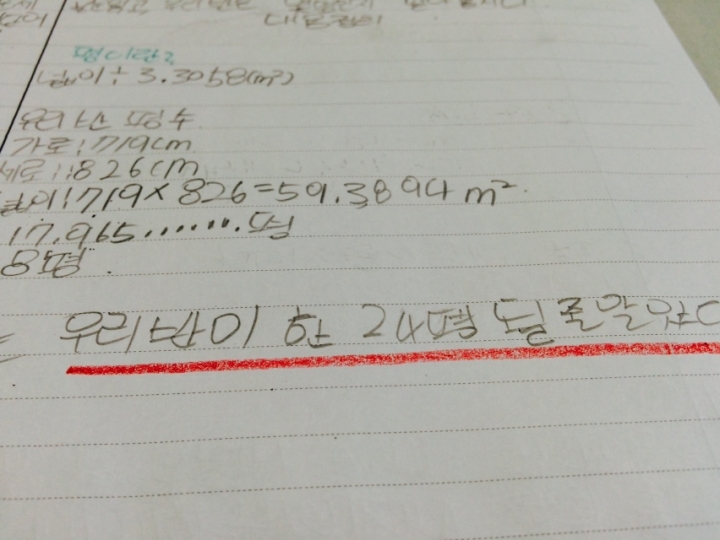 평이란?
넓이÷3.3058(m²)
우리 반 평수
가로:719cm
세로:826cm
넓이:719×826=59.3894m²
17.965.......평
8평
우리반이 한 24평 될줄알았